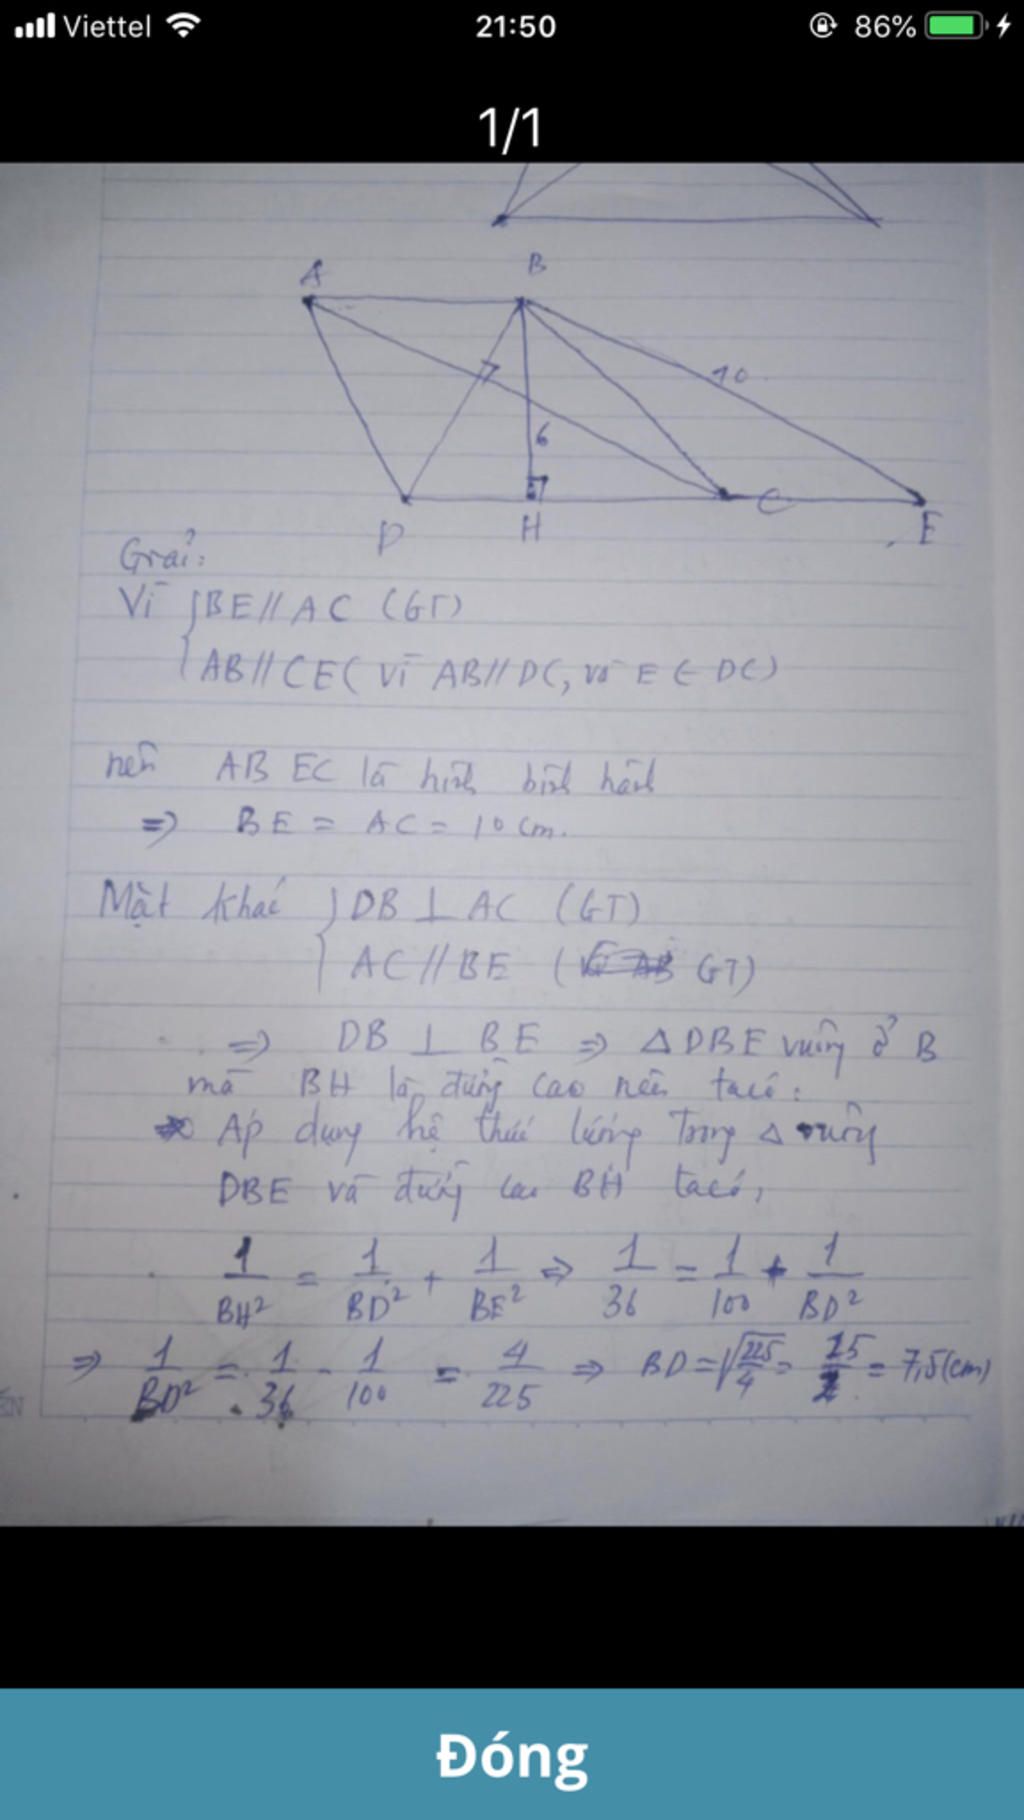 Viettel 21:50 86%
1/1
A B
10
6
D H C E
Giải:
Vì { BE // AC (GT)
AB // CE ( vì AB // DC, và E ∈ DC)
nên ABEC là hình bình hành
=> BE = AC = 10 cm.
Mặt khác { DB ⊥ AC (GT)
AC // BE ( GT)
=> DB ⊥ BE => Δ DBE vuông ở B
mà BH là đường cao nên ta có:
Áp dụng hệ thức lượng trong Δ vuông
DBE và đường cao BH ta có,
1/BH² = 1/BD² + 1/BE² => 1/36 = 1/100 + 1/BD²
=> 1/BD² = 1/36 - 1/100 = 4/225 => BD = √(225/4) = 15/2 = 7,5 (cm)
Đóng